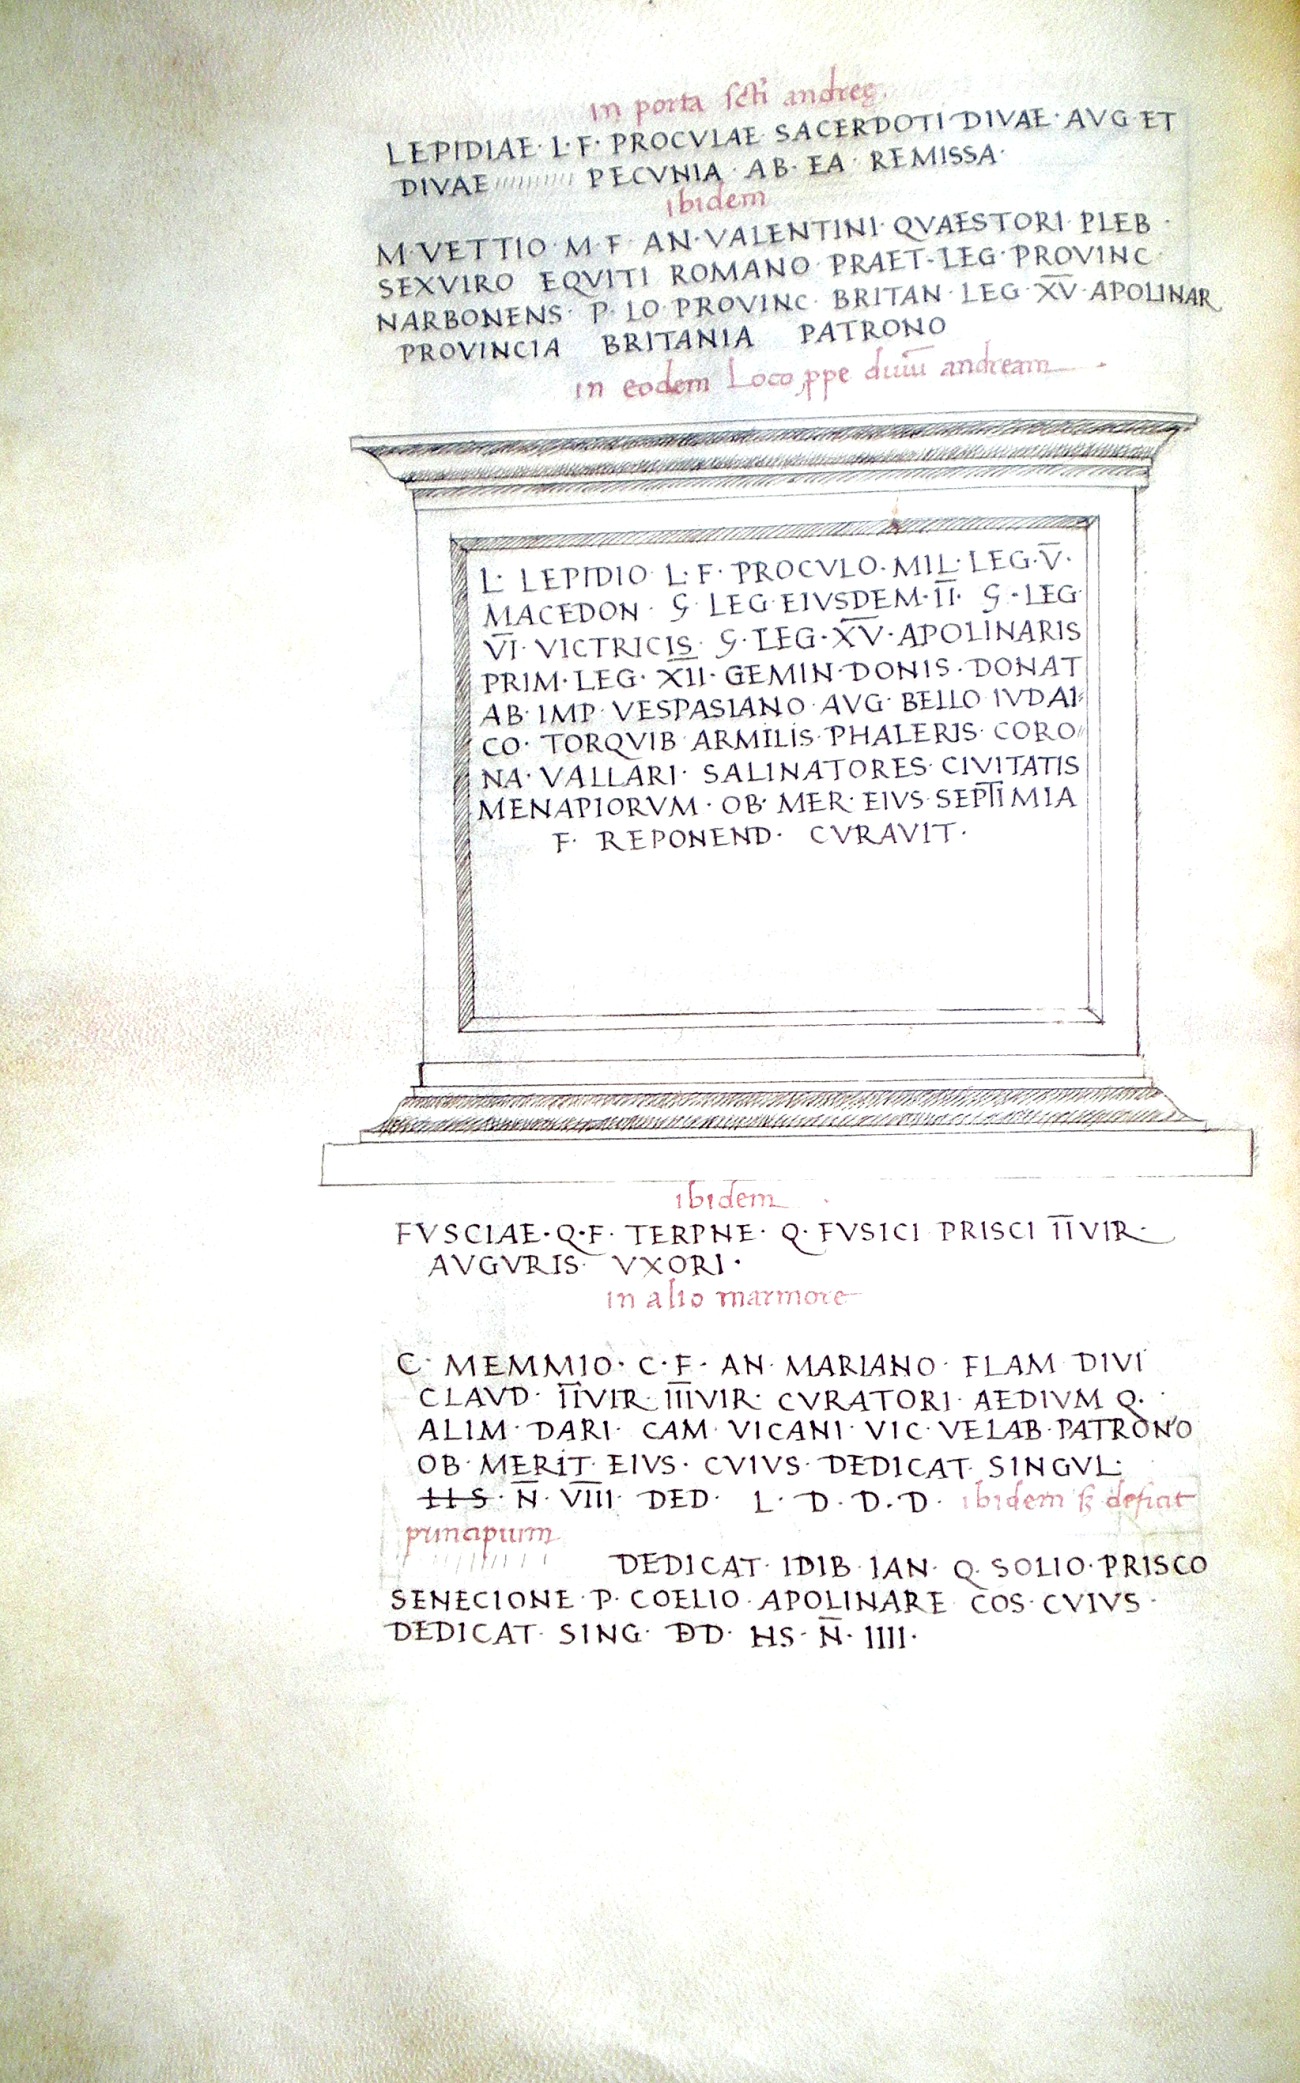 in porta scti andreę.
LEPIDIAE · L · F · PROCVLAE · SACERDOTI DIVAE · AVG · ET
DIVAE ///////// PECVNIA · AB · EA · REMISSA ·
ibidem
M · VETTIO · M · F · AN · VALENTINI · QVAESTORI · PLEB ·
SEXVIRO EQVITI ROMANO · PRAET · LEG · PROVINC ·
NARBONENS · P · LO · PROVINC · BRITAN · LEG · X̅V̅ · APOLINAR
PROVINCIA BRITANIA PATRONO
in eodem Loco ppe diuū andream .
L · LEPIDIO L · F · PROCVLO · MIL · LEG · V̅ ·
MACEDON · Ꞔ LEG · EIVSDEM · I̅I̅ · Ꞔ · LEG ·
V̅I̅ · VICTRICIS · Ꞔ · LEG · X̅V̅ · APOLINARIS
PRIM · LEG · X̅I̅I̅ · GEMIN · DONIS · DONAT
AB · IMP · VESPASIANO · AVG · BELLO IVDAI
CO · TORQVIB · ARMILIS · PHALERIS · CORO
NA · VALLARI · SALINATORES · CIVITATIS
MENAPIORVM · OB · MER · EIVS · SEPTIMIA
F · REPONEND · CVRAVIT ·
ibidem .
FVSCIAE · Q · F · TERPNE · Q · FVSICI PRISCI I̅I̅VIR ·
AVGVRIS · VXORI ·
in alio marmore
C · MEMMIO · C · F · AN · MARIANO · FLAM DIVI
CLAVD · I̅I̅VIR · I̅I̅I̅VIR · CVRATORI · AEDIVM Q ·
ALIM · DARI · CAM · VICANI · VIC · VELAB · PATRONO
OB · MERIT · EIVS · CVIVS · DEDICAT · SINGVL ·
HS · N̅ · V̅I̅I̅I̅ · DED · L · D · D · D · ibidem s; deficit
principium
/////// DEDICAT · IDIB · IAN · Q · SOLIO · PRISCO
SENECIONE · P · COELIO · APOLINARE COS · CVIVS ·
DEDICAT · SING · ĐD · HS · N̅ · IIII ·